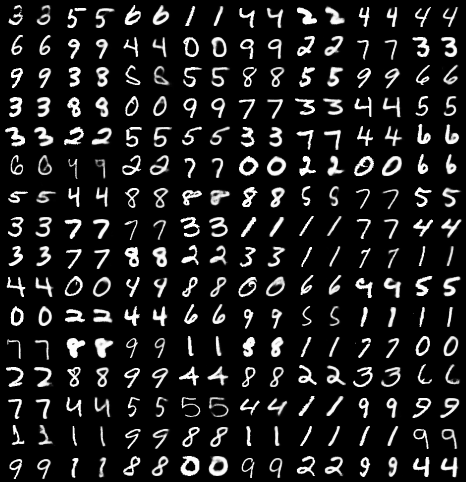 3 3 5 5 6 6 1 1 4 4 2 2 4 4 4 4
6 6 9 9 4 4 0 0 9 9 2 2 7 7 3 3
9 9 3 8 5 5 8 8 5 5 9 9 6 6
3 3 8 8 0 0 9 9 7 7 3 3 4 4 5 5
3 3 2 2 5 5 5 5 3 3 7 7 4 4 6 6
6 6 9 9 2 2 7 7 0 0 2 2 0 0 6 6
5 5 4 4 8 8 8 8 8 8 5 5 7 7 5 5
3 3 7 7 7 7 3 3 1 1 1 1 7 7 4 4
3 3 7 7 8 8 2 2 3 3 1 1 7 7 1 1
4 4 0 0 9 9 8 8 0 0 6 6 9 9 5 5
0 0 2 2 4 4 6 6 9 9 5 5 1 1 1 1
7 7 8 8 9 9 1 1 8 8 1 1 7 7 0 0
2 2 8 8 9 9 4 4 8 8 2 2 3 3 6 6
7 7 4 4 5 5 5 5 4 4 1 1 9 9 9 9
1 1 1 1 9 9 8 8 1 1 1 1 1 1 9 9
9 9 1 1 8 8 0 0 9 9 2 2 9 9 4 4